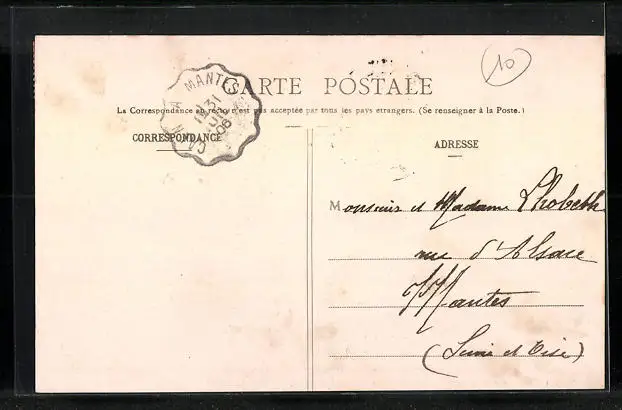 10
CARTE POSTALE
La Correspondance au recto n'est pas acceptée par tous les pays étrangers. (Se renseigner à la Poste.)
MANTES
31
06
CORRESPONDANCE
ADRESSE
Monsieur et Madame
rue d'Alsace
Mantes
(Seine et Oise)